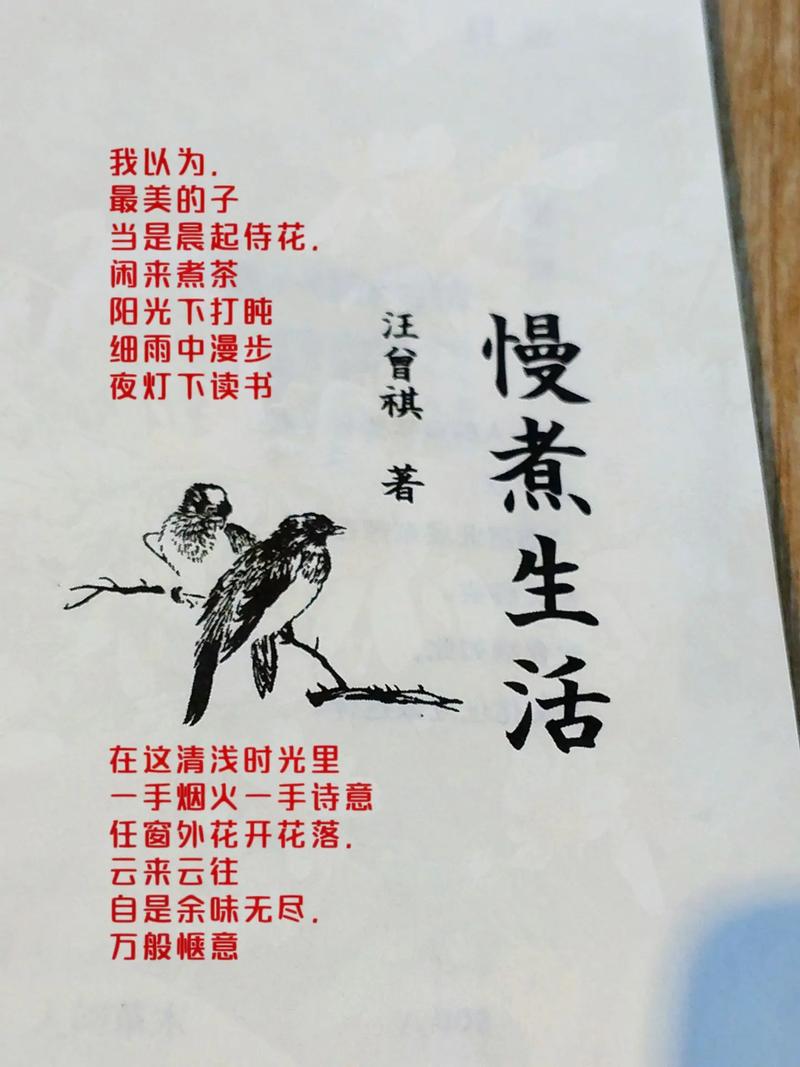 我以为，
最美的子
当是晨起侍花，
闲来煮茶
阳光下打盹
细雨中漫步
夜灯下读书
慢煮生活
汪曾祺 著
在这清浅时光里
一手烟火一手诗意
任窗外花开花落，
云来云往
自是余味无尽，
万般惬意